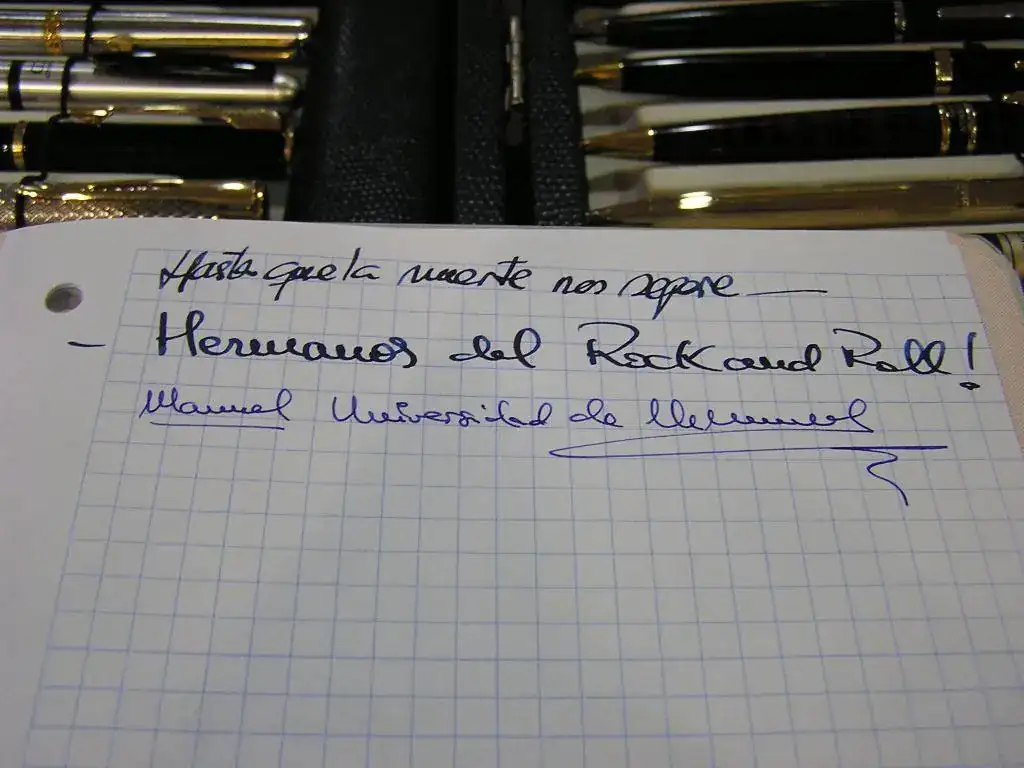 Hasta que la muerte nos separe —
- Hermanos del Rock and Roll!
Manuel Universidad de